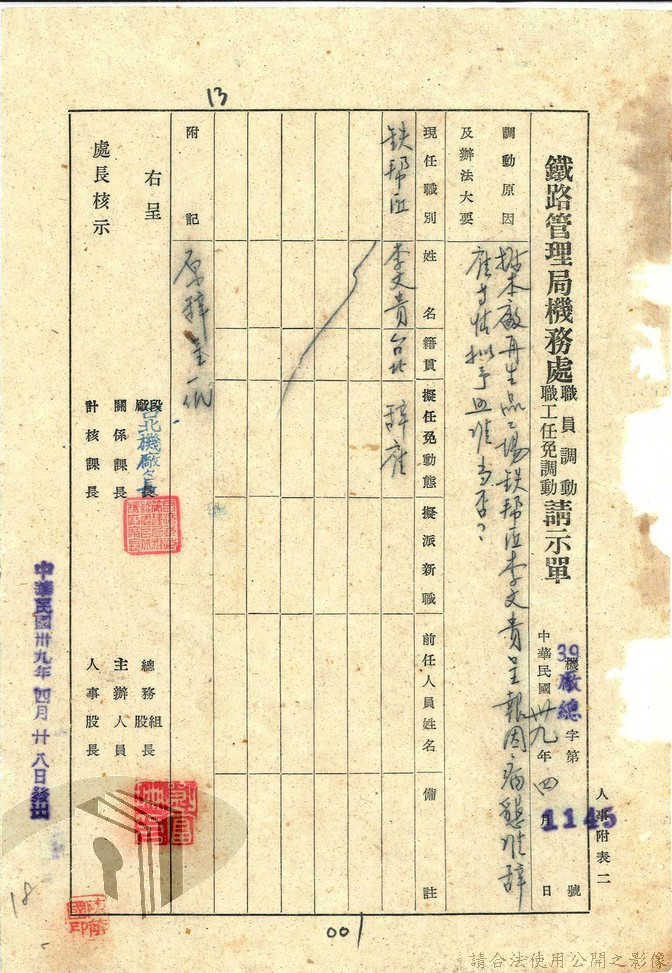 13
人事附表二
鐵路管理局機務處職員調動職工任免調動請示單
39機廠總字第1145號
中華民國卅九年四月 日
調動原因及辦法大要
據本廠再生品工場鉄帮匠李文貴呈報因病懇准辭
雇等情擬予照准當否？
現任職別
姓名
籍貫
擬任免動態
擬派新職
前任人員姓名
備註
鉄帮匠
李文貴
台北
辭雇
附記
原辭呈一紙
右呈
處長核示
段廠長
台北機廠廠長
關係課長
計核課長
總務組股長
主辦人員
人事股長
中華民國卅九年四月廿八日發出
18
001
請合法使用公開之影像